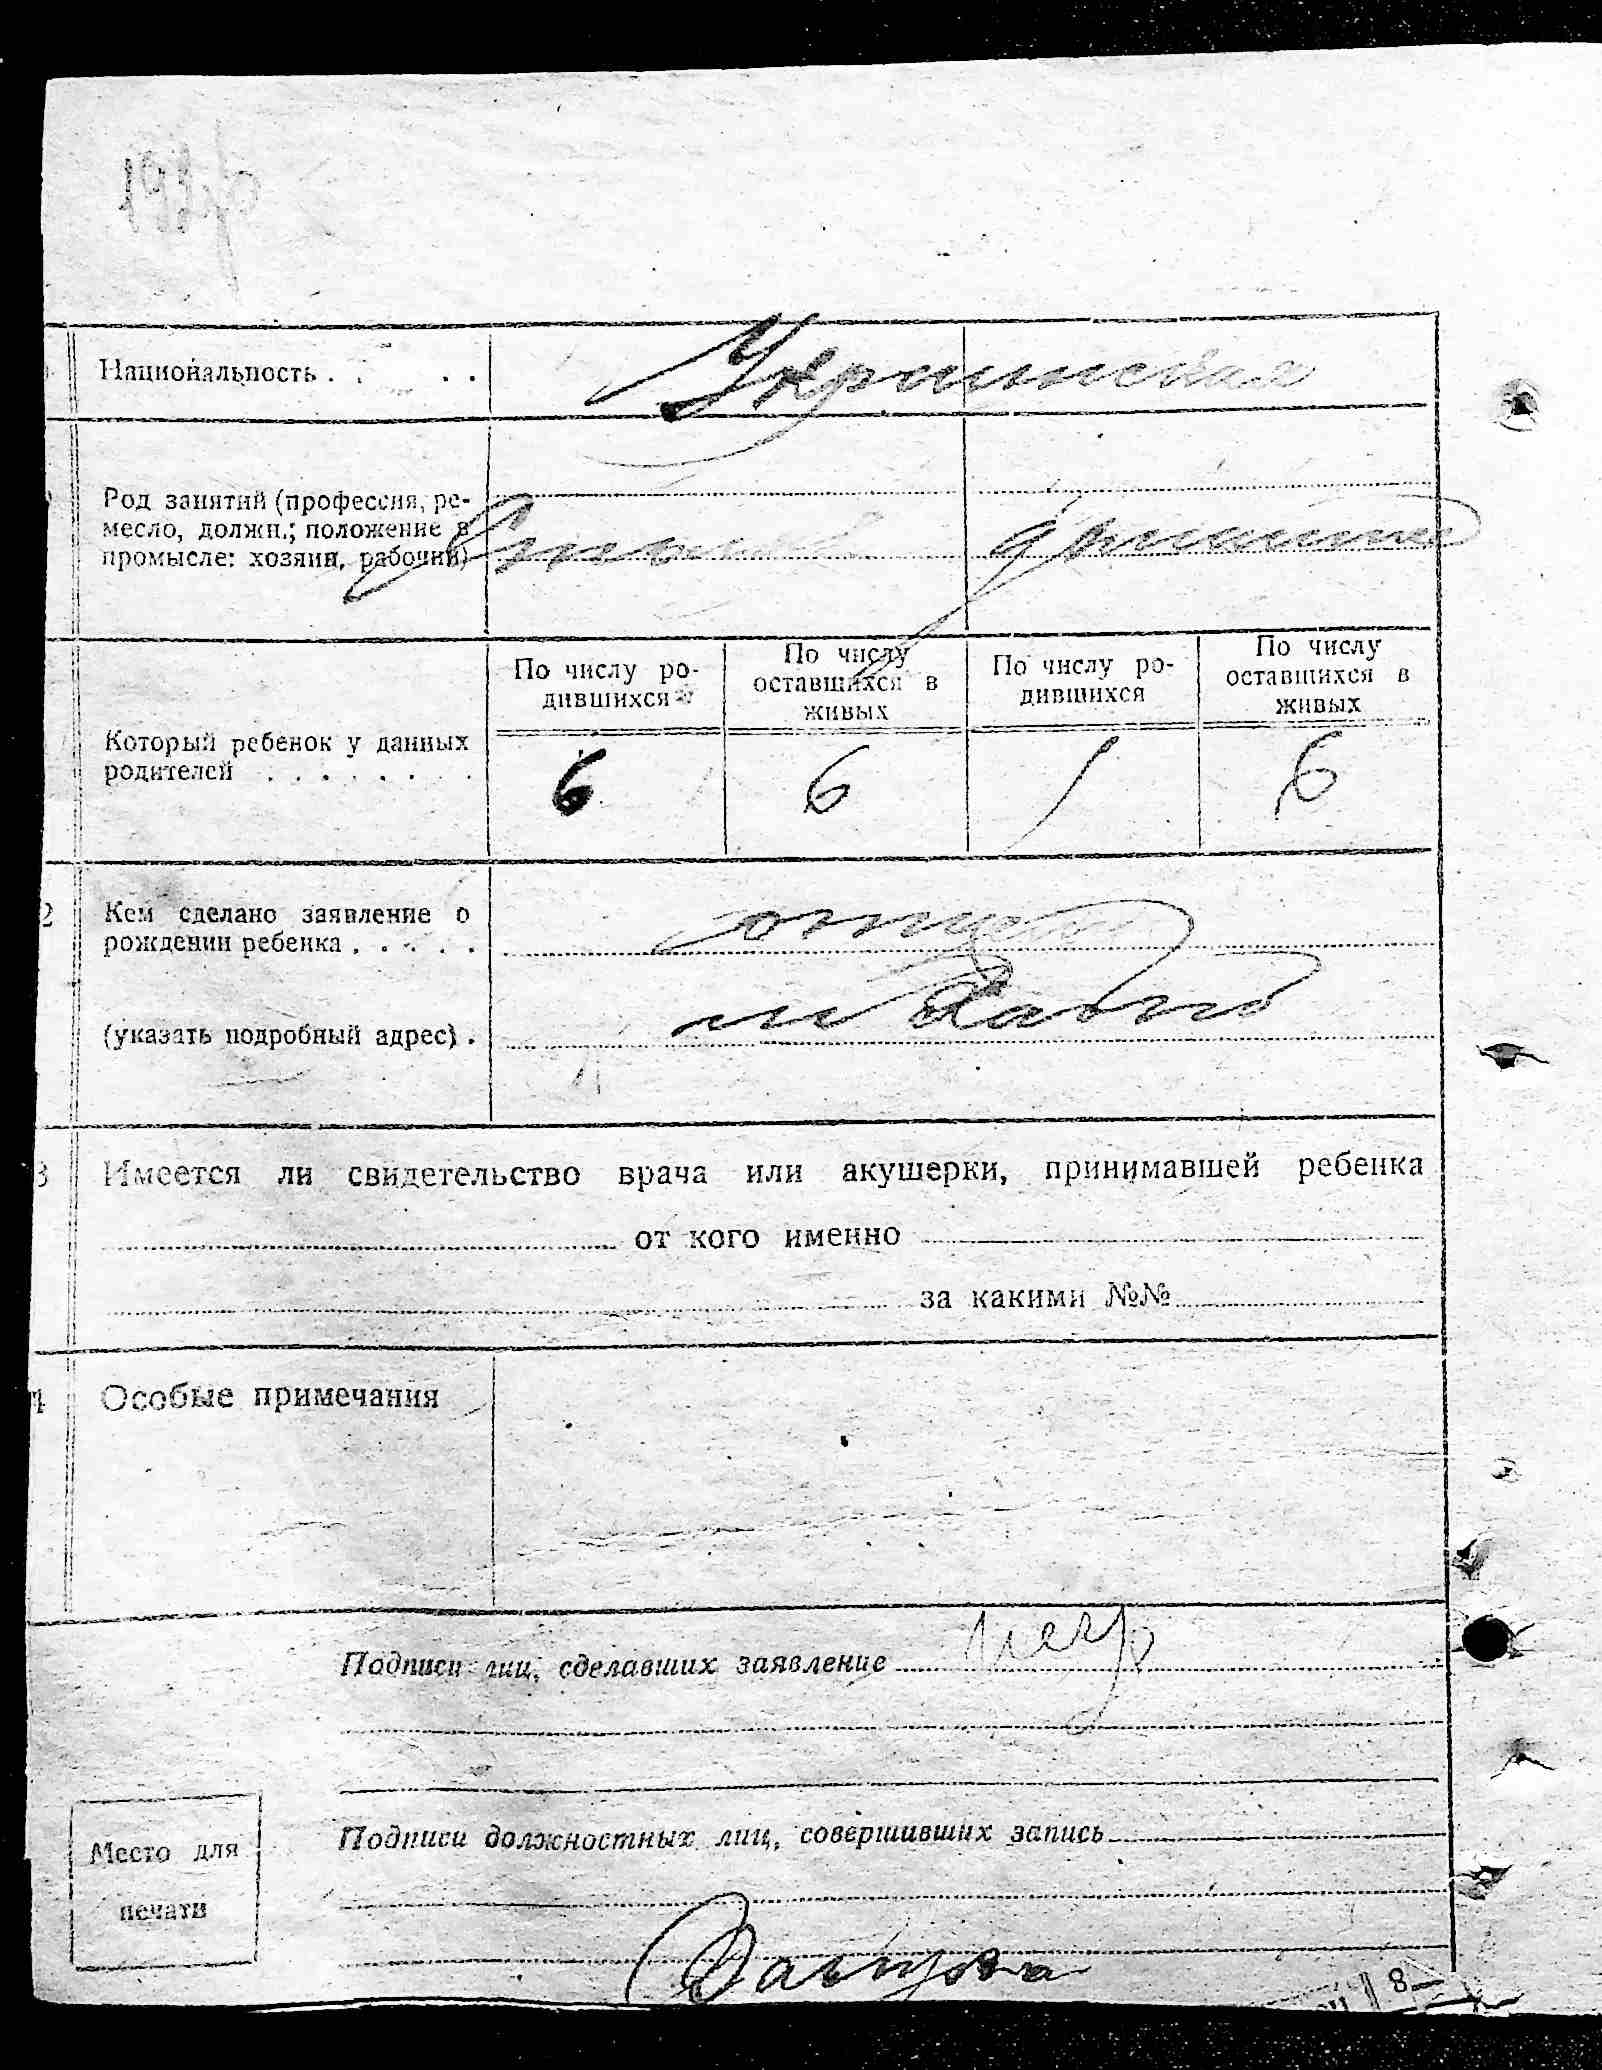 Национальность . . . .
Украинская
Род занятий (профессия, ре-
месло, должн.; положение в
промысле: хозяин, рабочий)
По числу ро-
дившихся
По числу
оставшихся в
живых
По числу ро-
дившихся
По числу
оставшихся в
живых
Который ребенок у данных
родителей . . . . . . .
6 6 1 6
2 Кем сделано заявление о
рождении ребенка . . . . .
отцом
(указать подробный адрес) .
3 Имеется ли свидетельство врача или акушерки, принимавшей ребенка
от кого именно
за какими №№
4 Особые примечания
Подписи лиц, сделавших заявление
Место для
печати
Подписи должностных лиц, совершивших запись
8